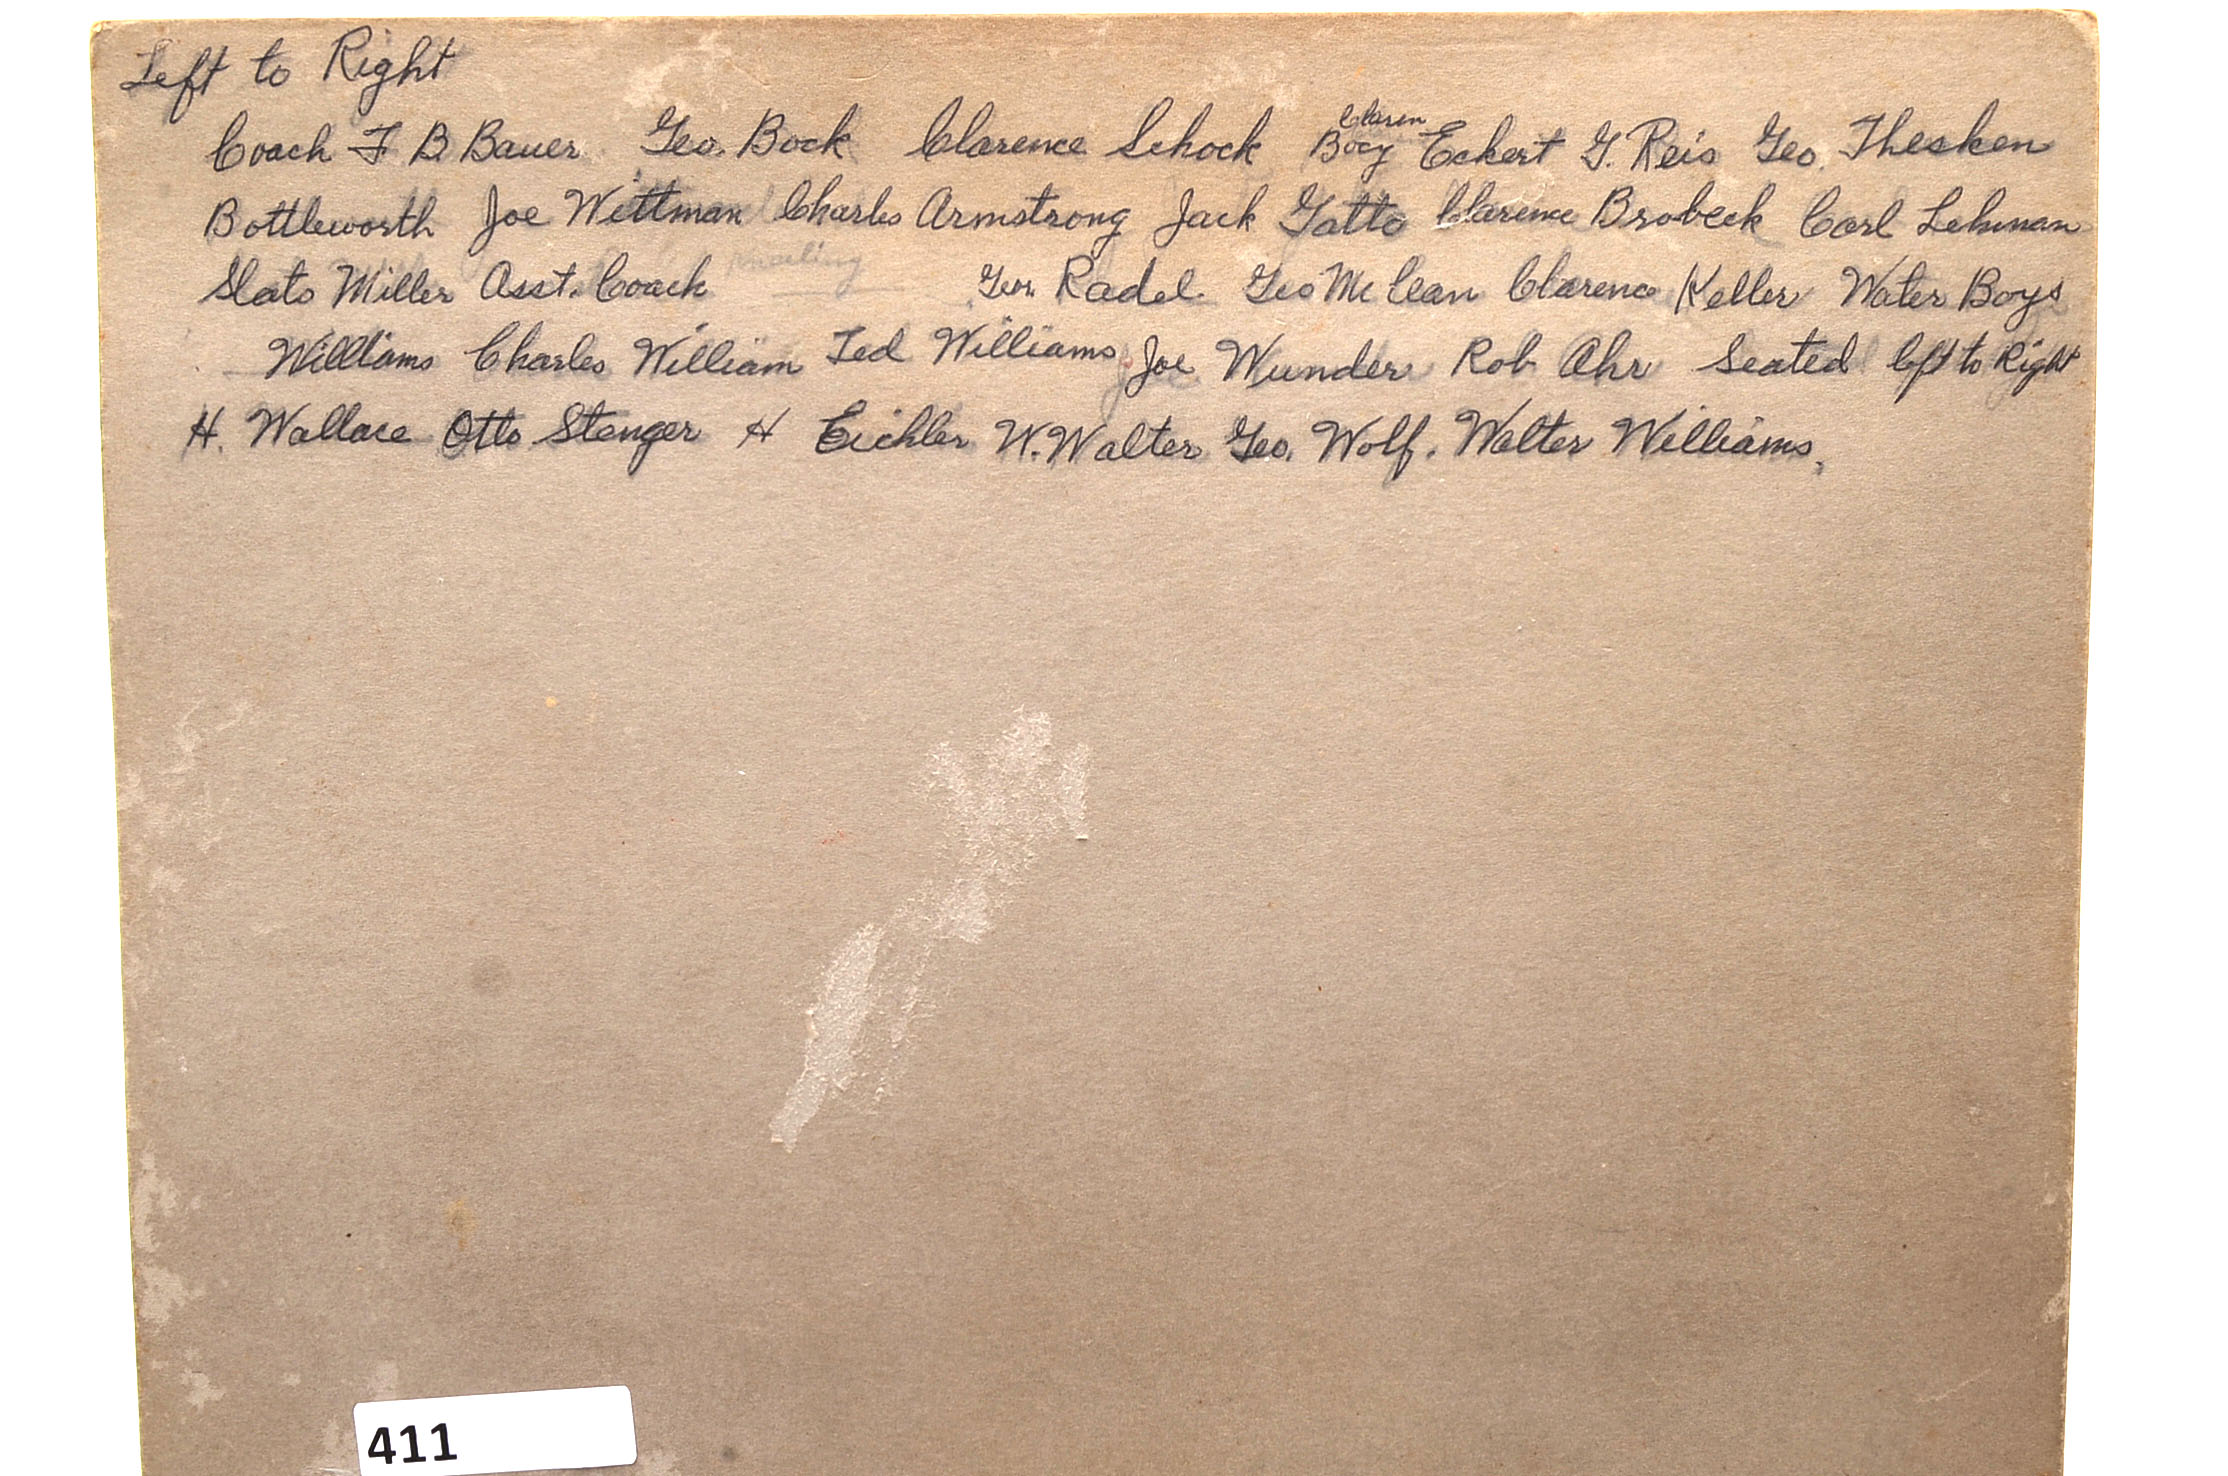 Left to Right
Coach F B Bauer Geo. Bock Clarence Schock Bocy Claren Eckert G. Reis Geo. Thesken
Bottleworth Joe Wittman Charles Armstrong Jack Gatto Clarence Brobeck Carl Lehman
Slats Miller Asst. Coach kneeling Geo. Radel. Geo Mc Clean Clarence Keller Water Boys
Williams Charles William Ted Williams Joe Wunder Rob Ahr Seated left to Right
H. Wallace Otto Stenger H Eichler W. Walter Geo. Wolf. Walter Williams.
411